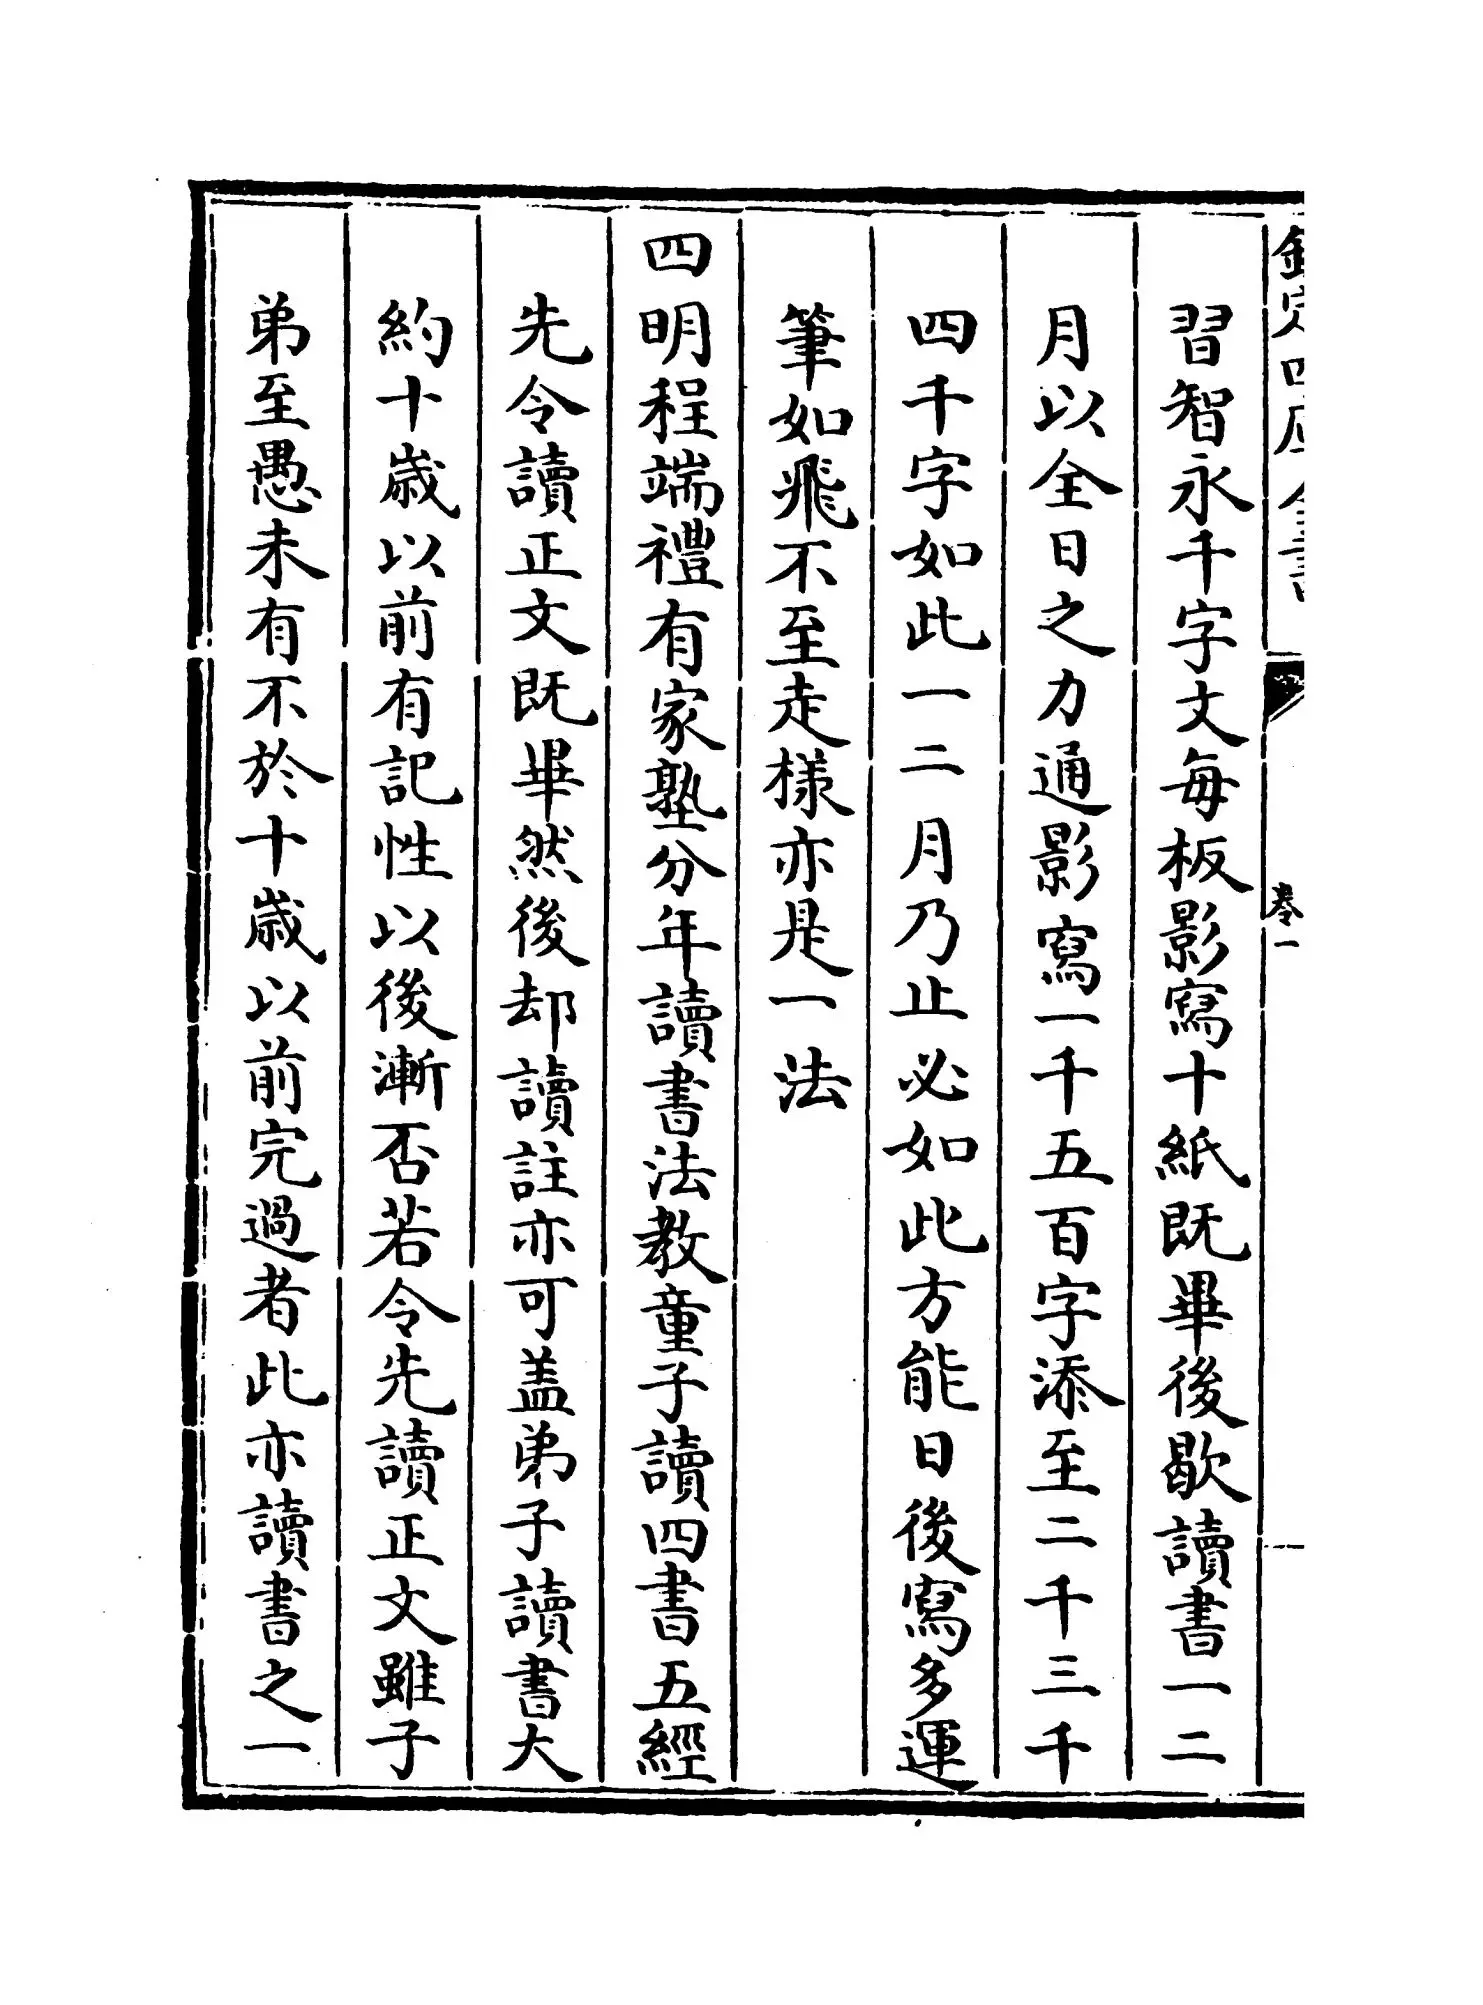 欽定四庫全書
卷一
習智永千字文每板影寫十紙既畢後歇讀書一二
月以全日之力通影寫一千五百字添至二千三千
四千字如此一二月乃止必如此方能日後寫多運
筆如飛不至走樣亦是一法
四明程端禮有家塾分年讀書法教童子讀四書五經
先令讀正文既畢然後却讀註亦可盖弟子讀書大
約十歲以前有記性以後漸否若令先讀正文雖子
弟至愚未有不於十歲以前完過者此亦讀書之一